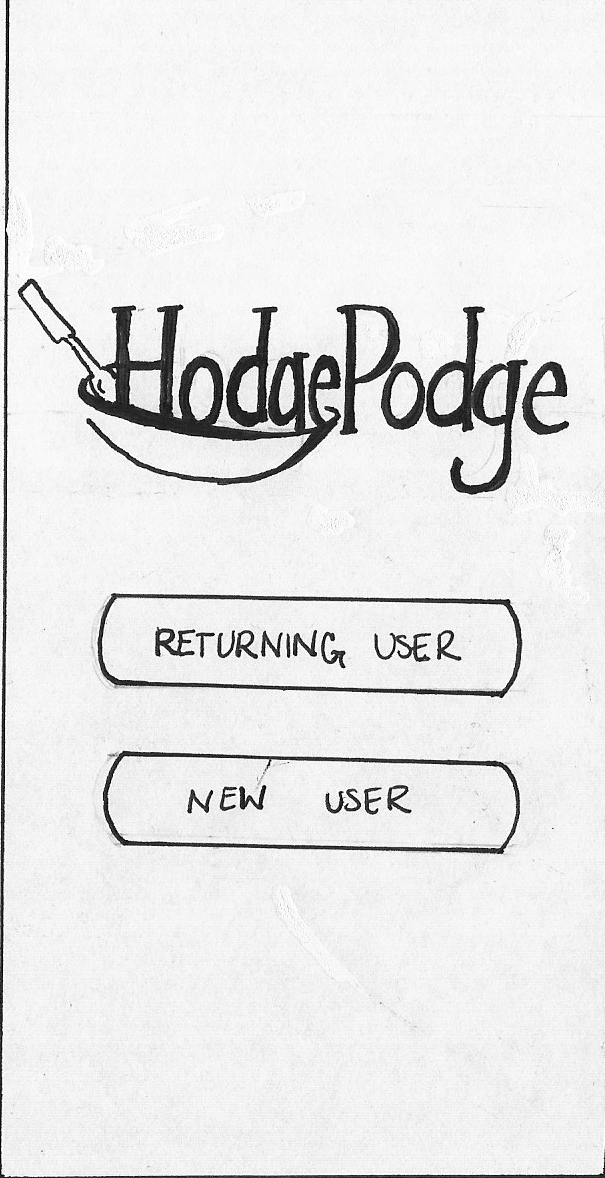 HodgePodge
RETURNING USER
NEW USER